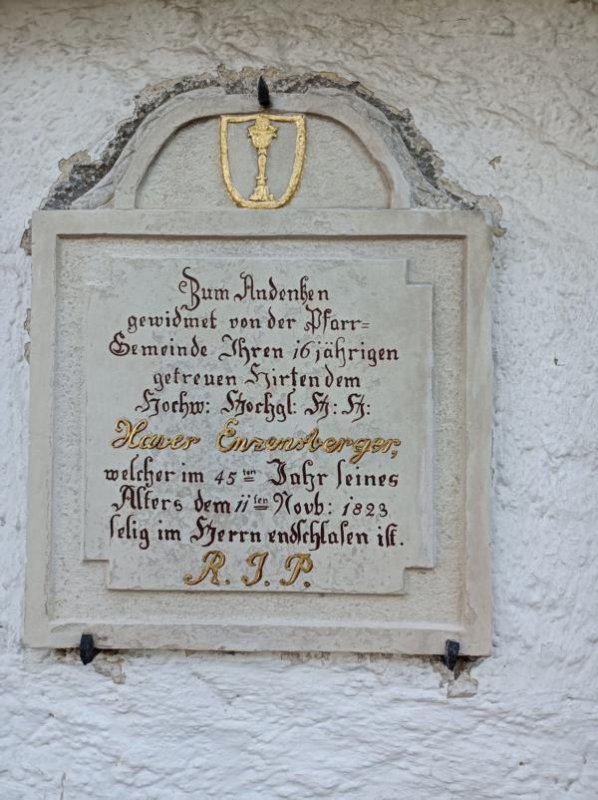 Zum Andenken
gewidmet von der Pfarr=
Gemeinde Ihren 16jährigen
getreuen Hirten dem
Hochw: Hochgl: H: H:
Xaver Enzensberger,
welcher im 45ten Jahr seines
Alters dem 11ten Novb: 1823
selig im Herrn endschlafen ist.
R. I. P.